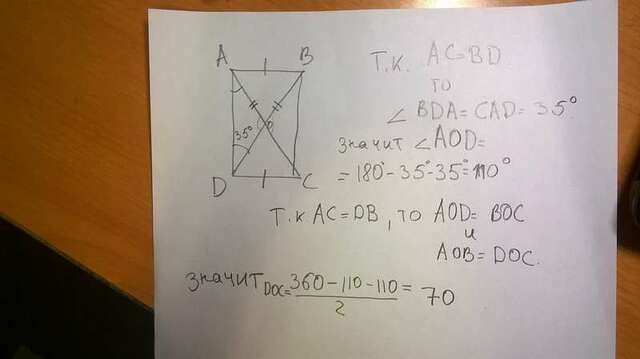 A B
35°
O
D C
Т.К. AC=BD
ТО
∠ BDA = CAD = 35°
значит ∠AOD=
= 180° - 35° - 35° = 110°
Т.К AC = DB, то AOD = BOC
и
AOB = DOC.
значит DOC = (360 - 110 - 110) / 2 = 70